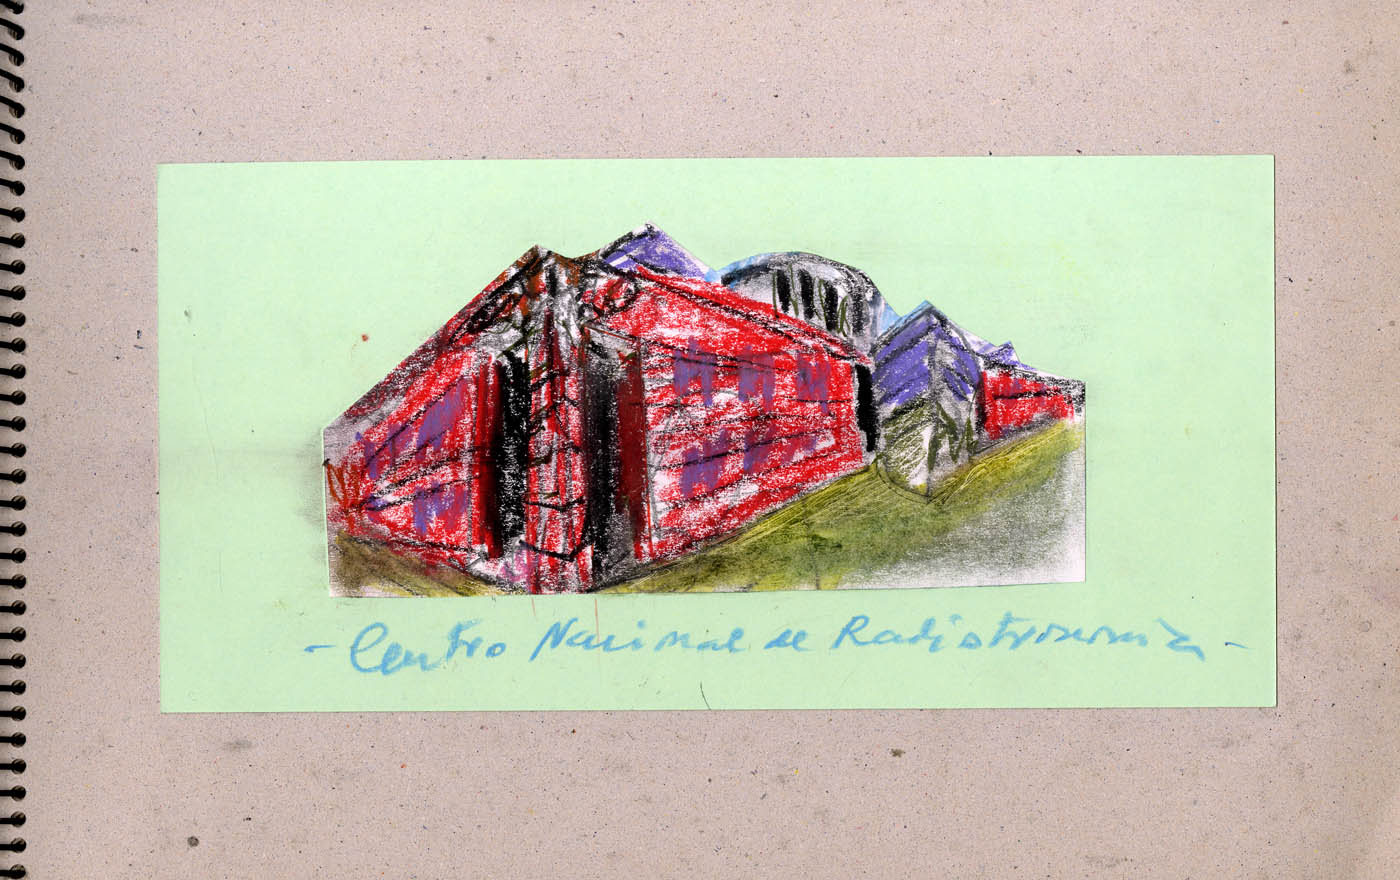 - Centro Nacional de Radiostronomia -